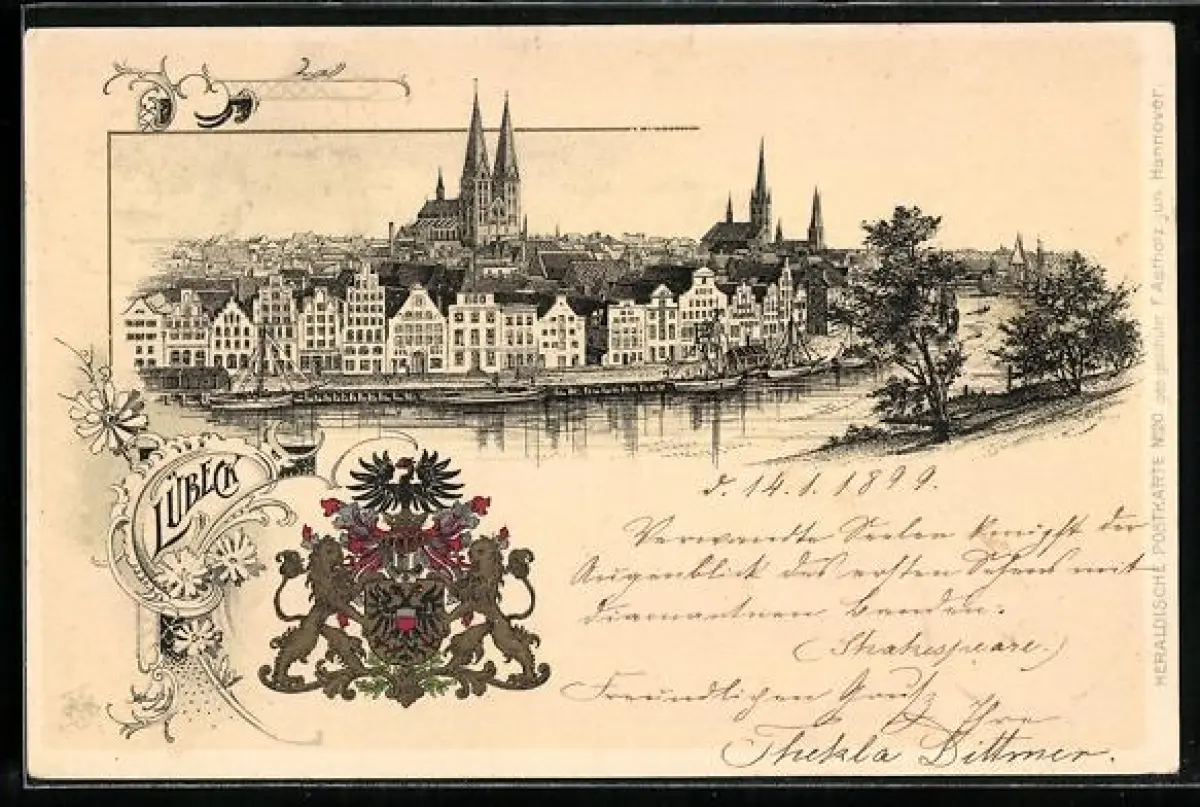 LÜBECK
d. 14.1.1899.
Verwandte Seelen knüpft der
Augenblick des ersten Sehens mit
diamantnen Banden.
(Shakespeare.)
Freundlichen Gruß
Ihre
Thekla Dittmer.
HERALDISCHE POSTKARTE No 20 Hannover.